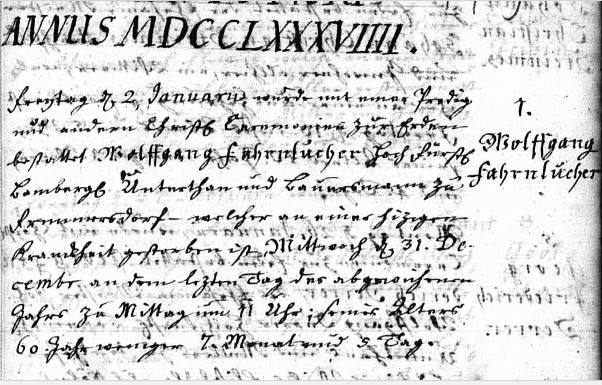 ANNUS MDCCLXXXVIIII.
Freytag d. 2. Januarii, wurde mit einer Predig
und andern Christl. Ceremonien zur Erden
bestattet Wolffgang Fahrnlucher Hoch Fürstl.
Bambergl. Unterthan und Bauersmann zu
Fremmersdorf – welcher an einer hizigen
Kranckheit gestorben ist Mittwoch d. 31. De-
cembr. an dem lezten Tag des abgewichenen
Jahrs zu Mittag um 11 Uhr, seines Alters
60 Jahr weniger 7. Monat und 5 Tag.
1.
Wolffgang
Fahrnlucher